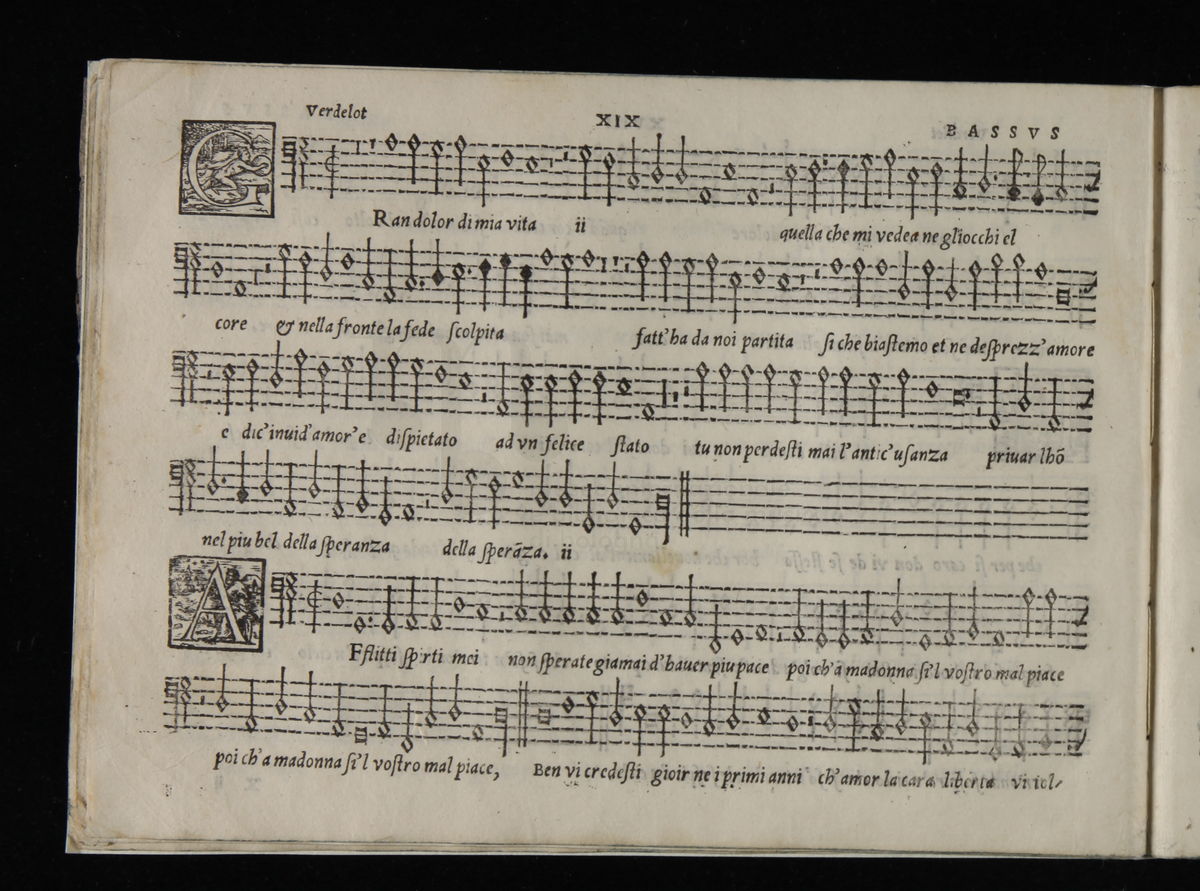 Verdelot XIX BASSVS
GRan dolor di mia vita ii quella che mi vedea ne gl'iocchi el
core & nella fronte la fede scolpita fatt'ha da noi partita si che biastemo et ne desprezz'amore
e dic'inuid'amor'e dispietato ad vn felice stato tu non perdesti mai l'antic'usanza priuar lhō
nel piu bel della speranza della sperāza. ii
AFflitti spirti mei non sperate giamai d'hauer piu pace poi ch'a madonna si'l vostro mal piace
poi ch'a madonna si'l vostro mal piace, Ben vi credesti gioir ne i primi anni ch'amor la cara liberta vi tol-